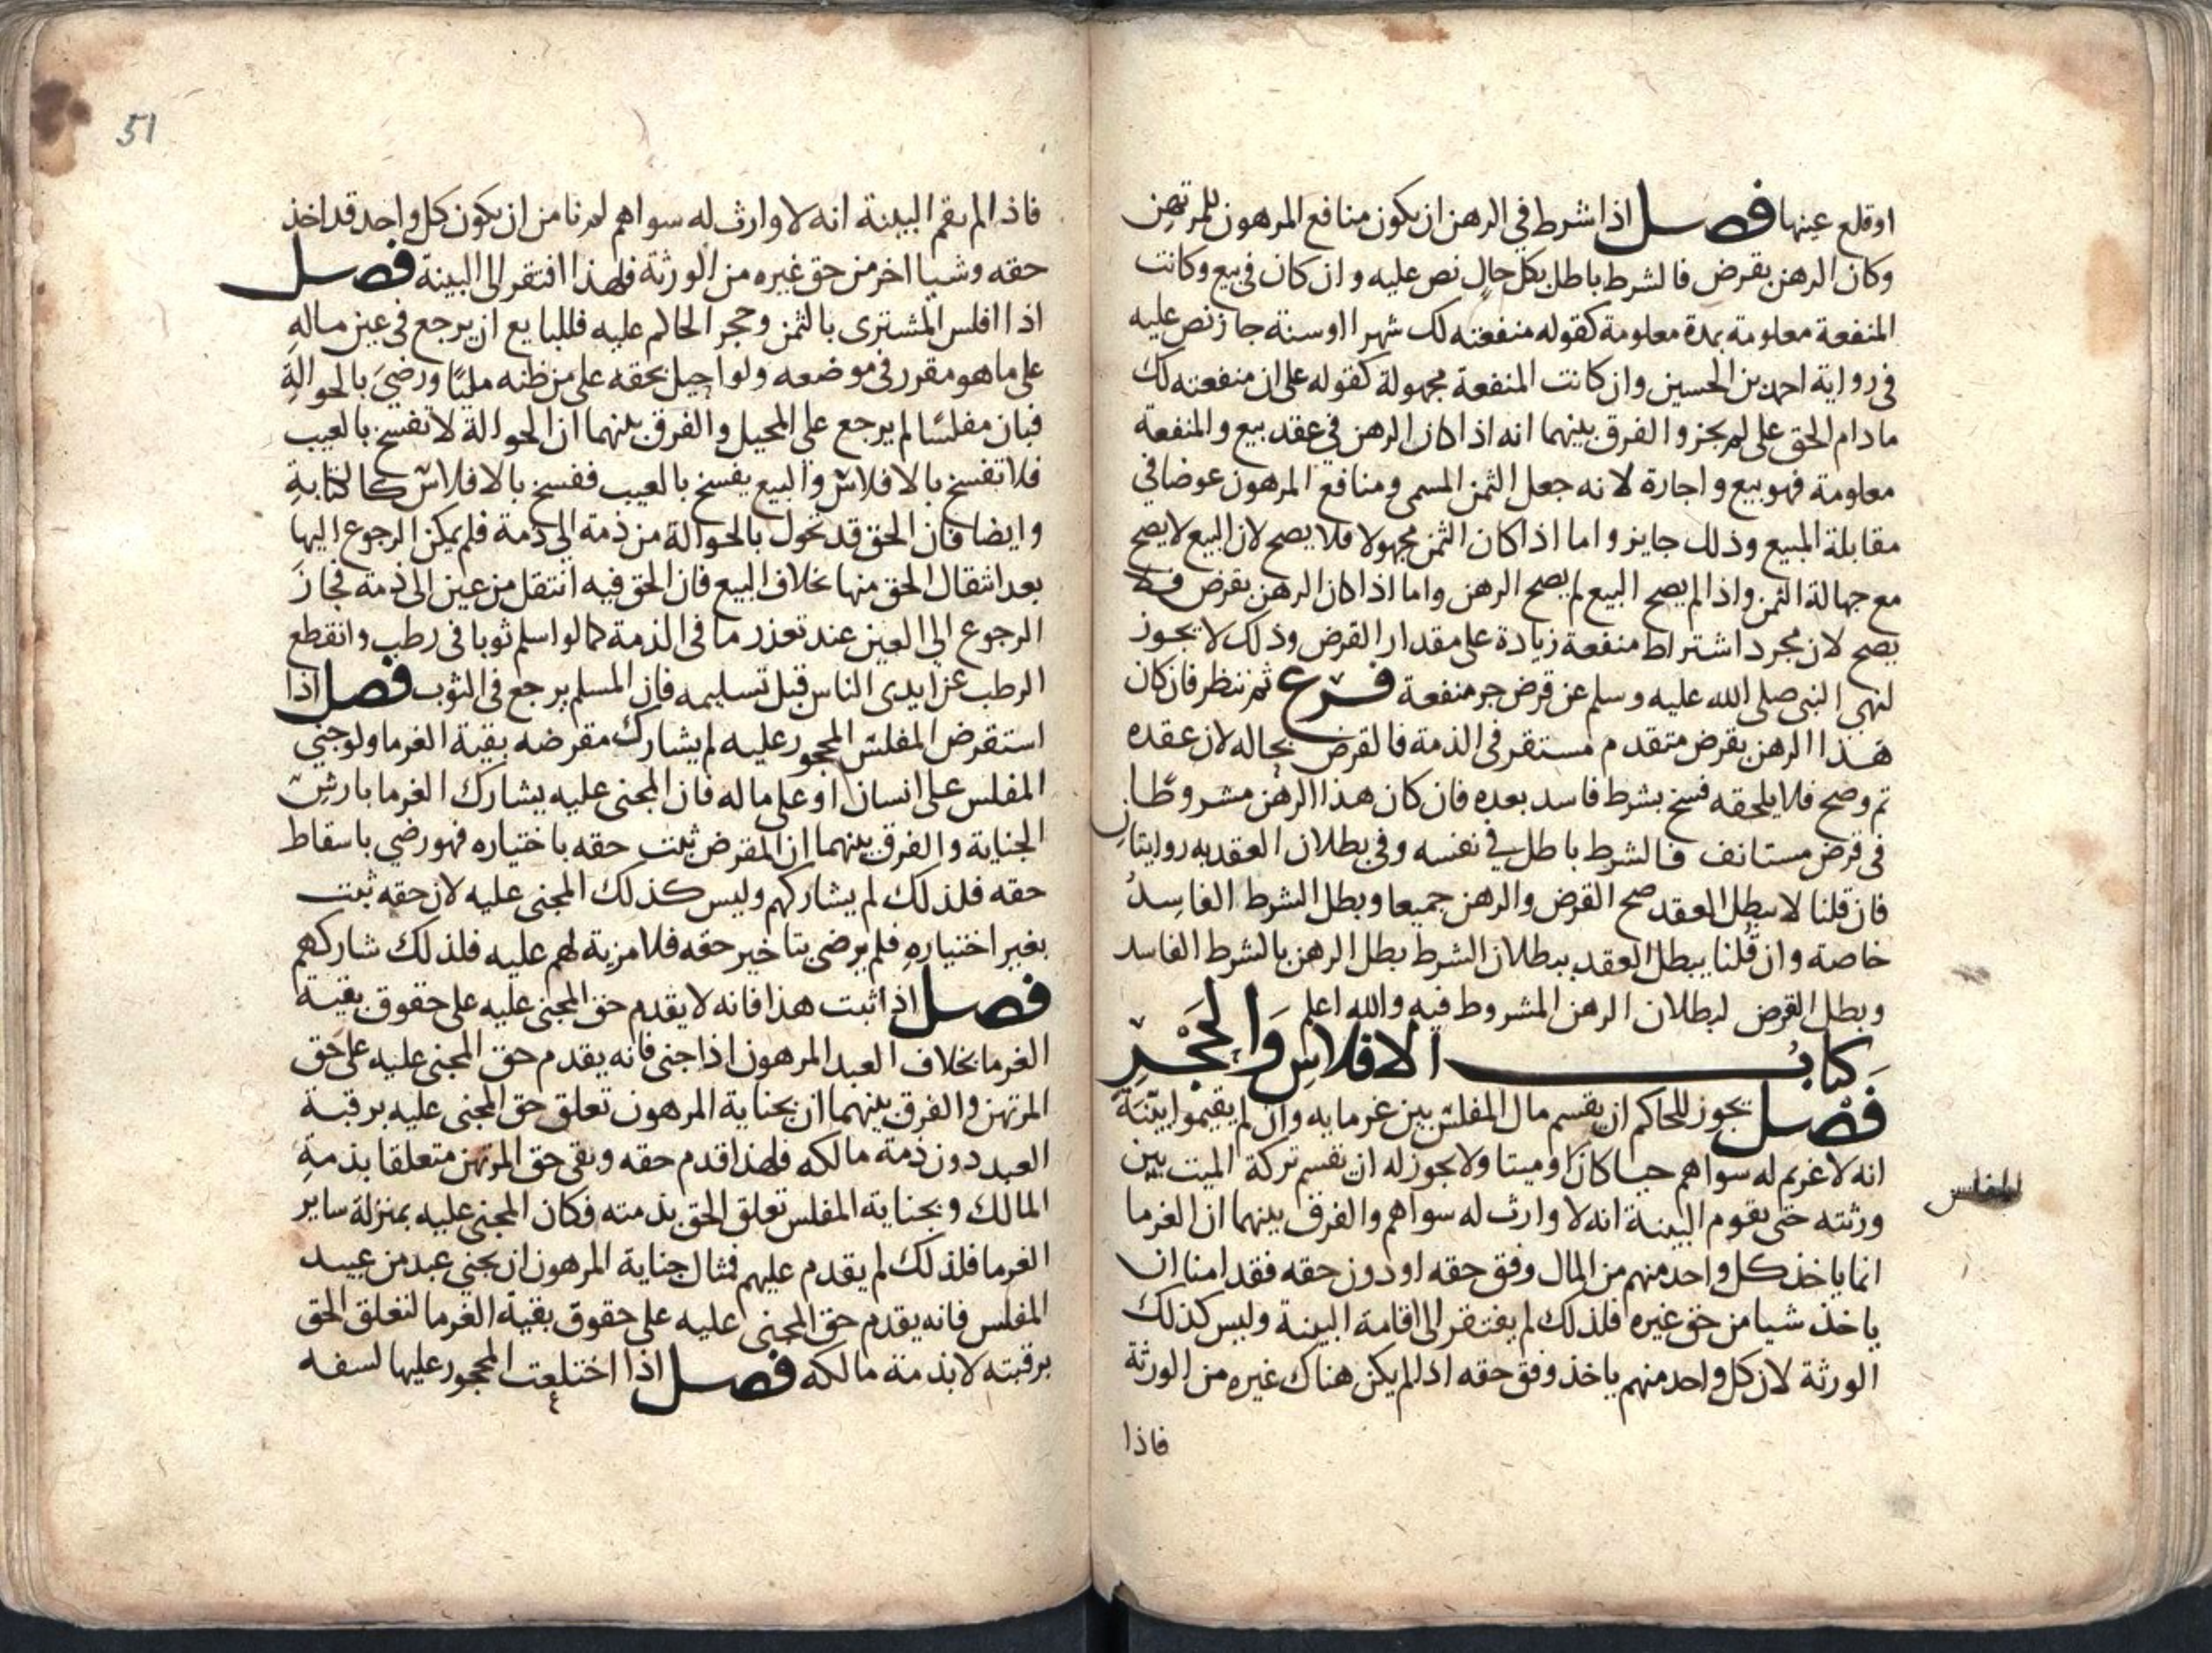 اوقلع عينها فصل اذا شرط في الرهن ان يكون منافع المرهون للمرتهن
وكان الرهن بقرض فالشرط باطل بكل حال نص عليه وان كان في بيع وكانت
المنفعة معلومة بمدة معلومة كقوله منفعته لك شهرا اوسنة جاز نص عليه
في رواية احمد بن الحسين وان كانت المنفعة مجهولة كقوله على ان منفعته لك
ما دام الحق على لم يجز والفرق بينهما انه اذا كان الرهن في عقد بيع والمنفعة
معلومة فهو بيع واجارة لانه جعل الثمن المسمى ومنافع المرهون عوضا في
مقابلة المبيع وذلك جايز واما اذا كان الثمن مجهولا فلا يصح لان البيع لا يصح
مع جهالة الثمن واذا لم يصح البيع لم يصح الرهن واما اذا كان الرهن بقرض فلا
يصح لان مجرد اشتراط منفعة زيادة على مقدار القرض وذلك لا يجوز
لنهي النبي صلى الله عليه وسلم عن قرض جر منفعة فرع ثم ننظر فان كان
هذا الرهن بقرض متقدم مستقر في الذمة فالقرض بحاله لان عقده
تم وصح فلا يلحقه فسخ بشرط فاسد بعده فان كان هذا الرهن مشروطا
في قرض مستانف فالشرط باطل في نفسه وفي بطلان العقد به روايتان
فان قلنا لا يبطل العقد صح القرض والرهن جميعا وبطل الشرط الفاسد
خاصة وان قلنا يبطل العقد ببطلان الشرط بطل الرهن بالشرط الفاسد
وبطل القرض لبطلان الرهن المشروط فيه والله اعلم
كتاب الافلاس والحجر
فصل يجوز للحاكم ان يقسم مال المفلس بين غرمايه وان لم يقيموا بينة
انه لا غريم له سواهم حيا كان او ميتا ولا يجوز له ان يقسم تركة الميت بين
ورثته حتى يقوم البينة انه لا وارث له سواهم والفرق بينهما ان الغرما
انما ياخذ كل واحد منهم من المال وفق حقه او دون حقه فقد امنا ان
ياخذ شيا من حق غيره فلذلك لم يفتقر الى اقامة البينة وليس كذلك
الورثة لان كل واحد منهم ياخذ وفق حقه اذا لم يكن هناك غيره من الورثة
فاذا
للمفلس
51
فاذا لم يقم البينة انه لا وارث له سواهم لم نامن ان يكون كل واحد قد اخذ
حقه وشيا اخر من حق غيره من الورثة فلهذا افتقر الى البينة فصل
اذا افلس المشترى بالثمن وحجر الحاكم عليه فللبايع ان يرجع في عين ماله
على ما هو مقرر في موضعه ولو احيل بحقه على من ظنه مليًا ورضي بالحوالة
فبان مفلسًا لم يرجع على المحيل والفرق بينهما ان الحوالة لا تفسخ بالعيب
فلا تفسخ بالافلاس والبيع يفسخ بالعيب ففسخ بالافلاس كالكتابة
وايضا فان الحق قد تحول بالحوالة من ذمة الى ذمة فلم يمكن الرجوع اليها
بعد انتقال الحق منها بخلاف البيع فان الحق فيه انتقل من عين الى ذمة فجاز
الرجوع الى العين عند تعذر ما في الذمة كما لو اسلم ثوبا في رطب وانقطع
الرطب عن ايدى الناس قبل تسليمه فان المسلم يرجع في الثوب فصل اذا
استقرض المفلس المحجور عليه لم يشارك مقرضه بقية الغرما ولو جنى
المفلس على انسان او على ماله فان المجنى عليه يشارك الغرما بارش
الجناية والفرق بينهما ان المقرض ثبت حقه باختياره فهو رضي باسقاط
حقه فلذلك لم يشاركهم وليس كذلك المجنى عليه لان حقه ثبت
بغير اختياره فلم يرضى بتاخير حقه فلا مزية لهم عليه فلذلك شاركهم
فصل اذا ثبت هذا فانه لا يقدم حق المجنى عليه على حقوق بقية
الغرما بخلاف العبد المرهون اذا جنى فانه يقدم حق المجنى عليه على حق
المرتهن والفرق بينهما ان بجناية المرهون تعلق حق المجنى عليه برقبة
العبد دون ذمة مالكه فلهذا قدم حقه وبقى حق المرتهن متعلقا بذمة
المالك وبجناية المفلس تعلق الحق بذمته فكان المجنى عليه بمنزلة ساير
الغرما فلذلك لم يقدم عليهم فمثال جناية المرهون ان يجني عبد من عبيد
المفلس فانه يقدم حق المجنى عليه على حقوق بقية الغرما لتعلق الحق
برقبته لا بذمة مالكه فصل اذا اختلعت المحجور عليها لسفه